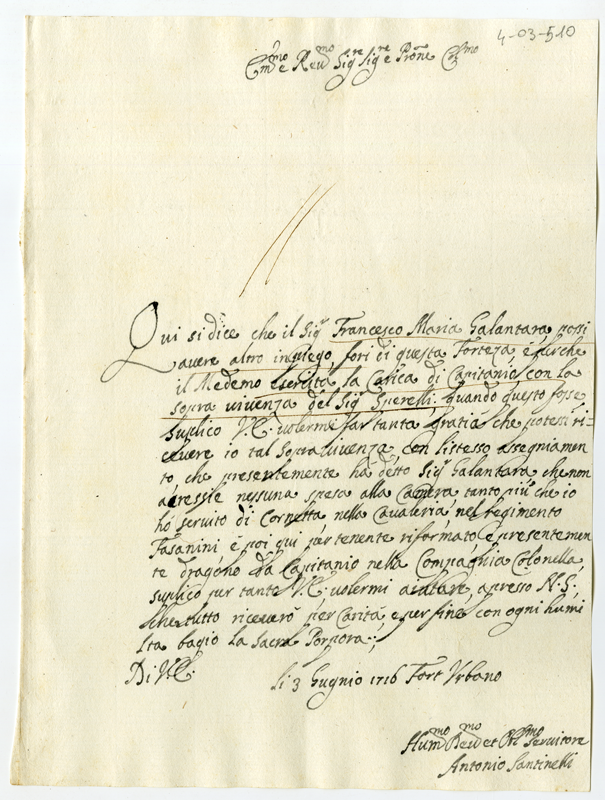 4-03-510
Em.mo e Rev.mo Sig.re Sig.re e Prōne Col.mo
Qui si dice che il Sig.r Francesco Maria Galantara possi
avere altro inpiego, fori di questa Forteza, e perche
il Medemo esercita la Carica di Capitanio con la
sopra vivenza del Sig.r Sperelli, quando questo fosse
suplico V.E. volerme far tanta gratia che potessi ri=
cevere io tal sopra vivenza con listesso assegniamen
to, che presentemente ha detto Sig.r Galantara che non
acressie nessuna spesa alla Camera tanto più che io
ho servito di Cornetta nella Cavaleria nel Regimento
Fasanini e poi qui per tenente riformato e presentemen
te dragono da Capitanio nella Compaghia Colonella,
suplico pur tante V.E. volermi aiutare apresso N.S.
che tutto riceverò per Carità e per fine con ogni humi
lta bagio la Sacra Porpora
Di V.E.
li 3 Gugnio 1716 Fort Urbano
Hum.mo Dev.mo et Obl.mo Servitore
Antonio Santinelli